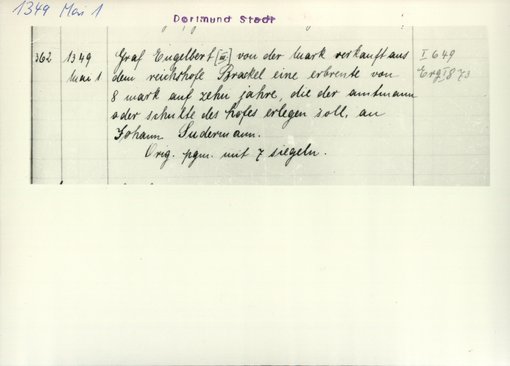 1349 Mai 1
Dortmund Stadt
362 1349 Graf Engelbert [III] von der Mark verkauft aus I 649
Mai 1 dem reichshofe Brackel eine erbrente von Erg I 873
8 mark auf zehn jahre, die der amtmann
oder schulte des hofes erlegen soll, an
Johann Sudermann.
Orig. pgm. mit 7 siegeln.